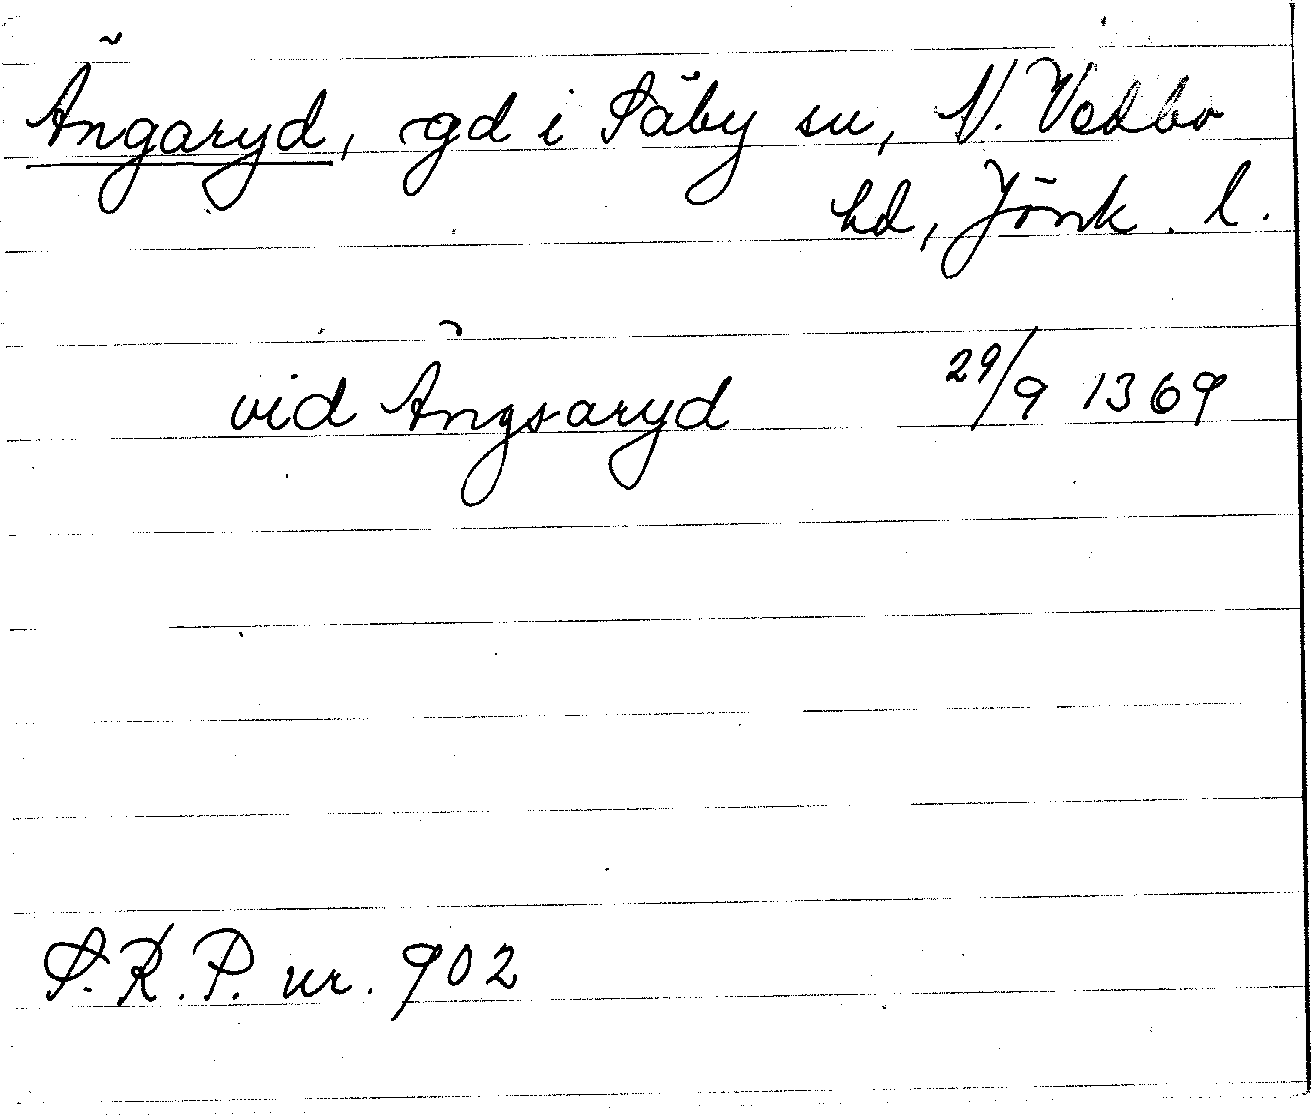 Ängaryd, gd i Säby sn, N. Vedbo
hd, Jönk. l.
vid Ängsaryd 29/9 1369
S.R.P. nr. 902